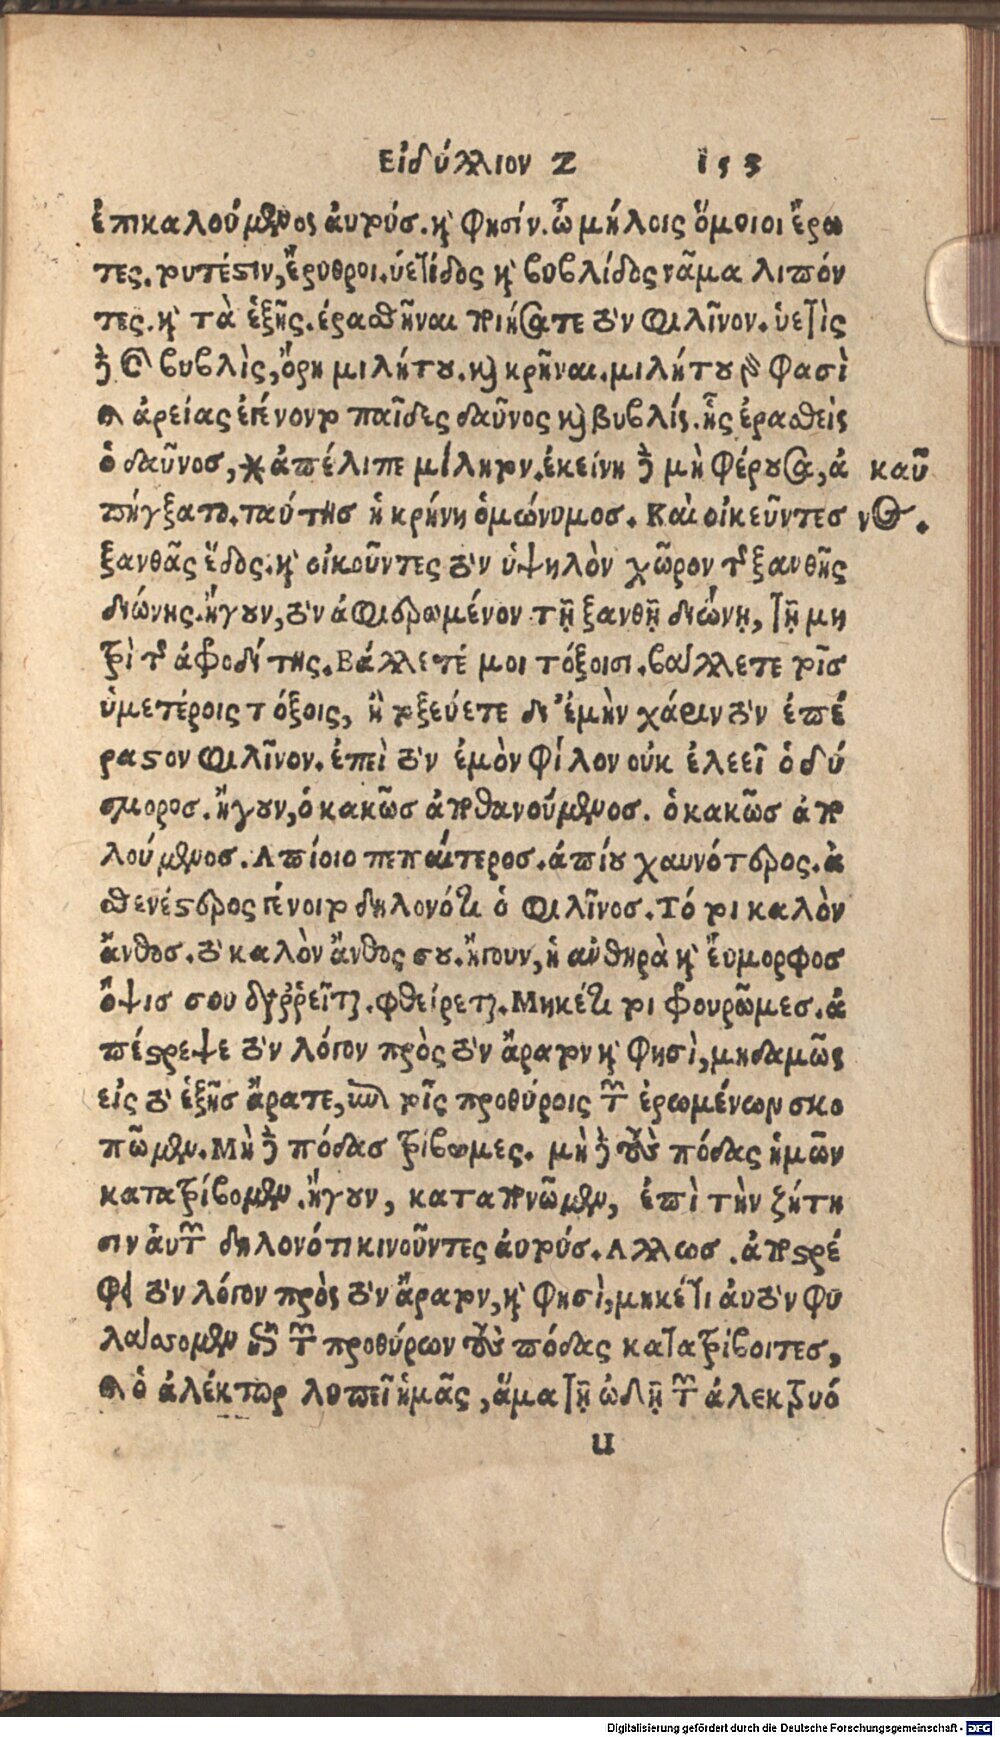 Εἰδύλλιον Ζ 153
ἐπικαλούμενος αὐτούς. καί φησιν. ὦ μήλοις ὅμοιοι ἔρω
τες. τουτέστιν, ἔρυθροι. ὑετίδος καὶ βυβλίδος νᾶμα λιπόν
τες. καὶ τὰ ἑξῆς. ἐρασθῆναι ποιήσατε τὸν Φιλῖνον. ὑετὶς
δὲ καὶ βυβλὶς, ὄρη μιλήτου. καὶ κρῆναι. μιλήτου γὰρ φασὶ
καὶ ἀρείας ἐγένοντο παῖδες δαῦνος καὶ βυβλίς. ἧς ἐρασθεὶς
ὁ δαῦνος, ἀπέλιπε μίλητον. ἐκείνη δὲ μὴ φέρουσα, ἀ καῦ
πήγξατο. ταύτης ἡ κρήνη ὁμώνυμος. Καὶ οἰκεῦντες νος.
ξανθᾶς ἕδος. καὶ οἰκοῦντες τὸν ὑψηλὸν χῶρον τῆς ξανθῆς
διώνης. ἤγουν, τὸν ἀφιερωμένον τῇ ξανθῇ διώνῃ, τῇ μη
τρὶ τῆς ἀφροδίτης. Βάλλετέ μοι τόξοισι. βάλλετε τοῖς
ὑμετέροις τόξοις, ἢ τοξεύετε δι’ ἐμὴν χάριν τὸν ἐπέ
ραστον Φιλῖνον. ἐπὶ τὸν ἐμὸν φίλον οὐκ ἐλεεῖ ὁ δύ
σμορος. ἤγουν, ὁ κακῶς ἀποθανούμενος. ὁ κακῶς ἀπο
λούμενος. Απίοιο πεπαίτερος. ἀπίου χαυνότερος. ἀ
σθενέστερος γένοιτο δηλονότι ὁ Φιλῖνος. Τό τοι καλὸν
ἄνθος. τὸ καλὸν ἄνθος σου. ἤγουν, ἡ ἀνθηρὰ καὶ εὔμορφος
ὄψις σου διαρρεῖται. φθείρεται. Μηκέτι τοι φρουρῶμες. ἀ
πέστρεψε τὸν λόγον πρὸς τὸν ἄρατον καὶ φησὶ, μηδαμῶς
εἰς τὸ ἑξῆς ἄρατε, ἐπὶ τοῖς προθύροις τῶν ἐρωμένων σκο
πῶμεν. Μὴ δὲ πόδας τρίβωμες. μὴ δὲ τοὺς πόδας ἡμῶν
κατατρίβομεν. ἤγουν, καταπονῶμεν, ἐπὶ τὴν ζήτη
σιν αὐτῶν δηλονότι κινοῦντες αὐτούς. Αλλως. ἀποστρέ
φει τὸν λόγον πρὸς τὸν ἄρατον, καὶ φησὶ, μηκέτι αὐτὸν φυ
λάσσομεν ἐπὶ τῶν προθύρων τοὺς πόδας κατατρίβοιτες,
καὶ ὁ ἀλέκτωρ λυπεῖ ἡμᾶς, ἅμα τῇ ᾠδῇ τῶν ἀλεκτρυό
u
Digitalisierung gefördert durch die Deutsche Forschungsgemeinschaft - DFG